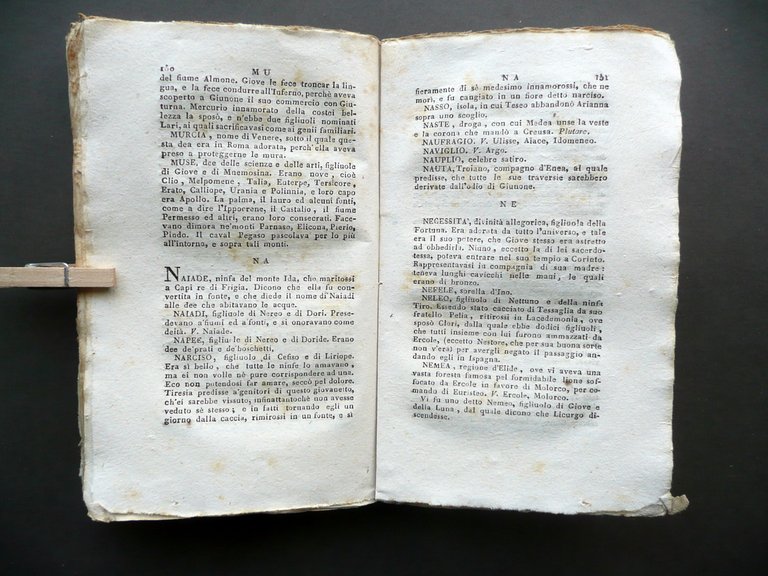 150 MU
del fiume Almone. Giove le fece troncar la lin-
gua, e la fece condurre all'Inferno, perchè aveva
scoperto a Giunone il suo commercio con Giu-
turna. Mercurio innamorato della costei bel-
lezza la sposò, e n'ebbe due figliuoli nominati
Lari, ai quali sacrificavasi come ai genii familiari.
MURCIA, nome di Venere, sotto il quale que-
sta dea era in Roma adorata, perch'ella aveva
preso a proteggerne le mura.
MUSE, dee delle scienze e delle arti, figliuole
di Giove e di Mnemosina. Erano nove, cioè
Clio, Melpomene, Talia, Euterpe, Tersicore,
Erato, Calliope, Urania e Polinnia, e loro capo
era Apollo. La palma, il lauro ed alcuni fonti,
come a dire l'Ippocrene, il Castalio, il fiume
Permesso ed altri, erano loro consecrati. Face-
vano dimora ne' monti Parnaso, Elicona, Pierio,
Pindo. Il caval Pegaso pascolava per lo più
all'intorno, e sopra tali monti.
NA
NAIADE, ninfa del monte Ida, che maritossi
a Capi re di Frigia. Dicono che ella fu con-
vertita in fonte, e che diede il nome di Naiadi
alle dee che abitavano le acque.
NAIADI, figliuole di Nereo e di Dori. Prese-
devano a' fiumi ed a' fonti, e si onoravano come
deità. V. Naiade.
NAPEE, figliuole di Nereo e di Doride. Erano
dee de' prati e de' boschetti.
NARCISO, figliuolo di Cefiso e di Liriope.
Era sì bello, che tutte le ninfe lo amavano,
ma ei non volle nè pure corrispondere ad una.
Eco non potendosi far amare, seccò pel dolore.
Tiresia predisse a' genitori di questo giovanetto,
ch'ei sarebbe vissuto, infinattantochè non avesse
veduto sè stesso; e in fatti tornando egli un
giorno dalla caccia, rimirossi in un fonte, e sì
NA 151
fieramente di sè medesimo innamorossi, che ne
morì, e fu cangiato in un fiore detto narciso.
NASSO, isola, in cui Teseo abbandonò Arianna
sopra uno scoglio.
NASTE, droga, con cui Medea unse la veste
e la corona che mandò a Creusa. Plutarc.
NAUFRAGIO. V. Ulisse, Aiace, Idomeneo.
NAVIGLIO. V. Argo.
NAUPLIO, celebre satiro.
NAUTA, Troiano, compagno d'Enea, al quale
predisse, che tutte le sue traversie sarebbero
derivate dall'odio di Giunone.
NE
NECESSITÀ, divinità allegorica, figliuola della
Fortuna. Era adorata da tutto l'universo, e tale
era il suo potere, che Giove stesso era astretto
ad obbedirla. Niuno, eccetto la di lei sacerdo-
tessa, poteva entrare nel suo tempio a Corinto.
Rappresentavasi in compagnia di sua madre:
teneva lunghi cavicchi nelle mani, le quali
erano di bronzo.
NEFELE, sorella d'Ino.
NELEO, figliuolo di Nettuno e della ninfa
Tiro. Essendo stato cacciato di Tessaglia da suo
fratello Pelia, ritirossi in Lacedemonia, ove
sposò Clori, dalla quale ebbe dodici figliuoli,
che tutti insieme con lui furono ammazzati da
Ercole, (eccetto Nestore, che per sua buona sorte
non v'era) per avergli negato il passaggio an-
dando egli in Ispagna.
NEMEA, regione d'Elide, ove vi aveva una
vasta foresta famosa pel formidabile lione sof-
focato da Ercole in favore di Molorco, per co-
mando di Euristeo. V. Ercole, Molorco.
Vi fu uno detto Nemeo, figliuolo di Giove e
della Luna, dal quale dicono che Licurgo di-
scendesse.